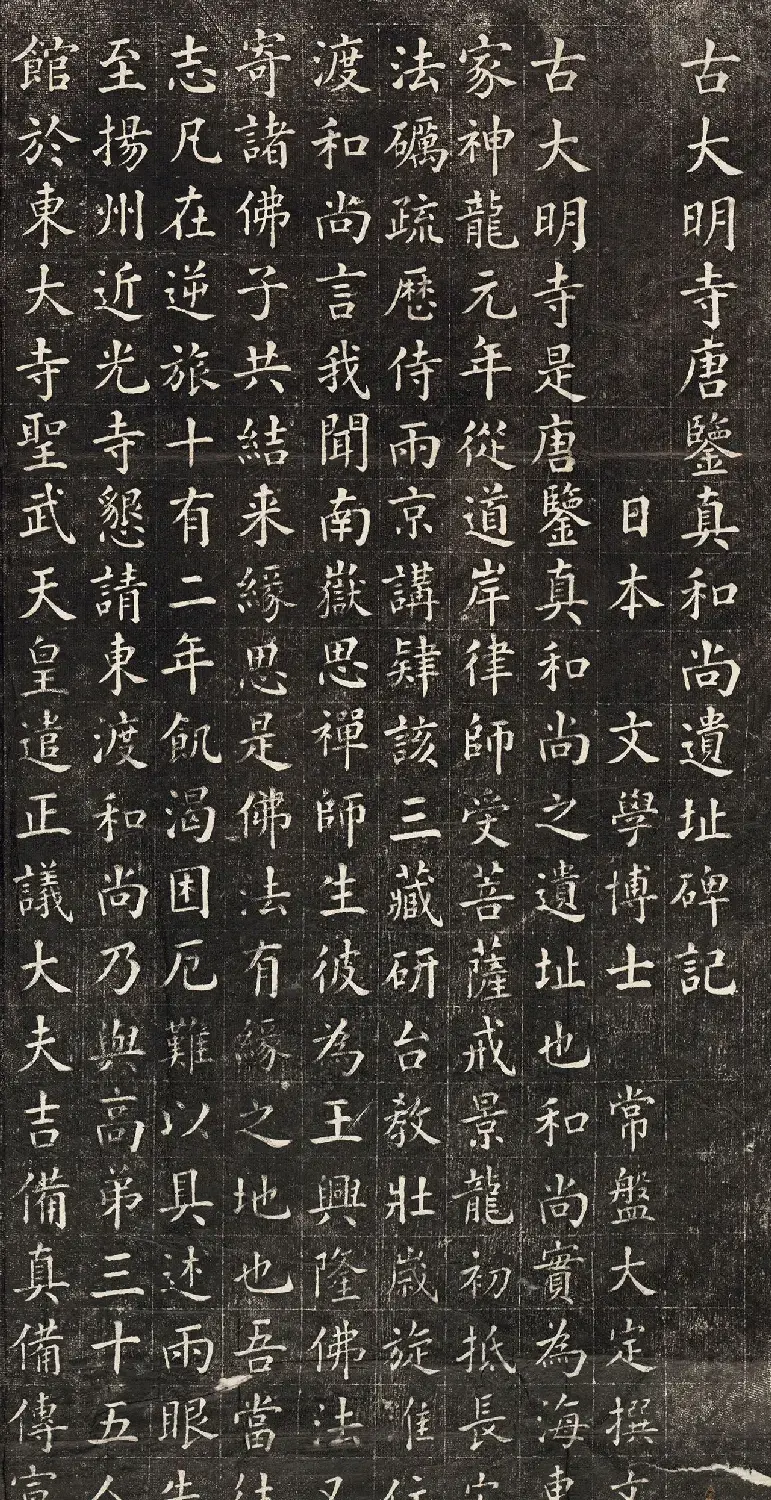 古大明寺唐鑒真和尚遺址碑記
日本 文學博士 常盤大定撰文
古大明寺是唐鑒真和尚之遺址也和尚實為海東
家神龍元年從道岸律師受菩薩戒景龍初抵長安
法礪疏歷侍兩京講肄該三藏研台教壯歳旋淮
渡和尚言我聞南嶽思禪師生彼為王興隆佛法又
寄諸佛子共結来緣思是佛法有緣之地也吾當往
志凡在逆旅十有二年飢渴困厄難以具述兩眼失
至揚州近光寺懇請東渡和尚乃與高弟三十五人
館於東大寺聖武天皇遣正議大夫吉備真備傳宣